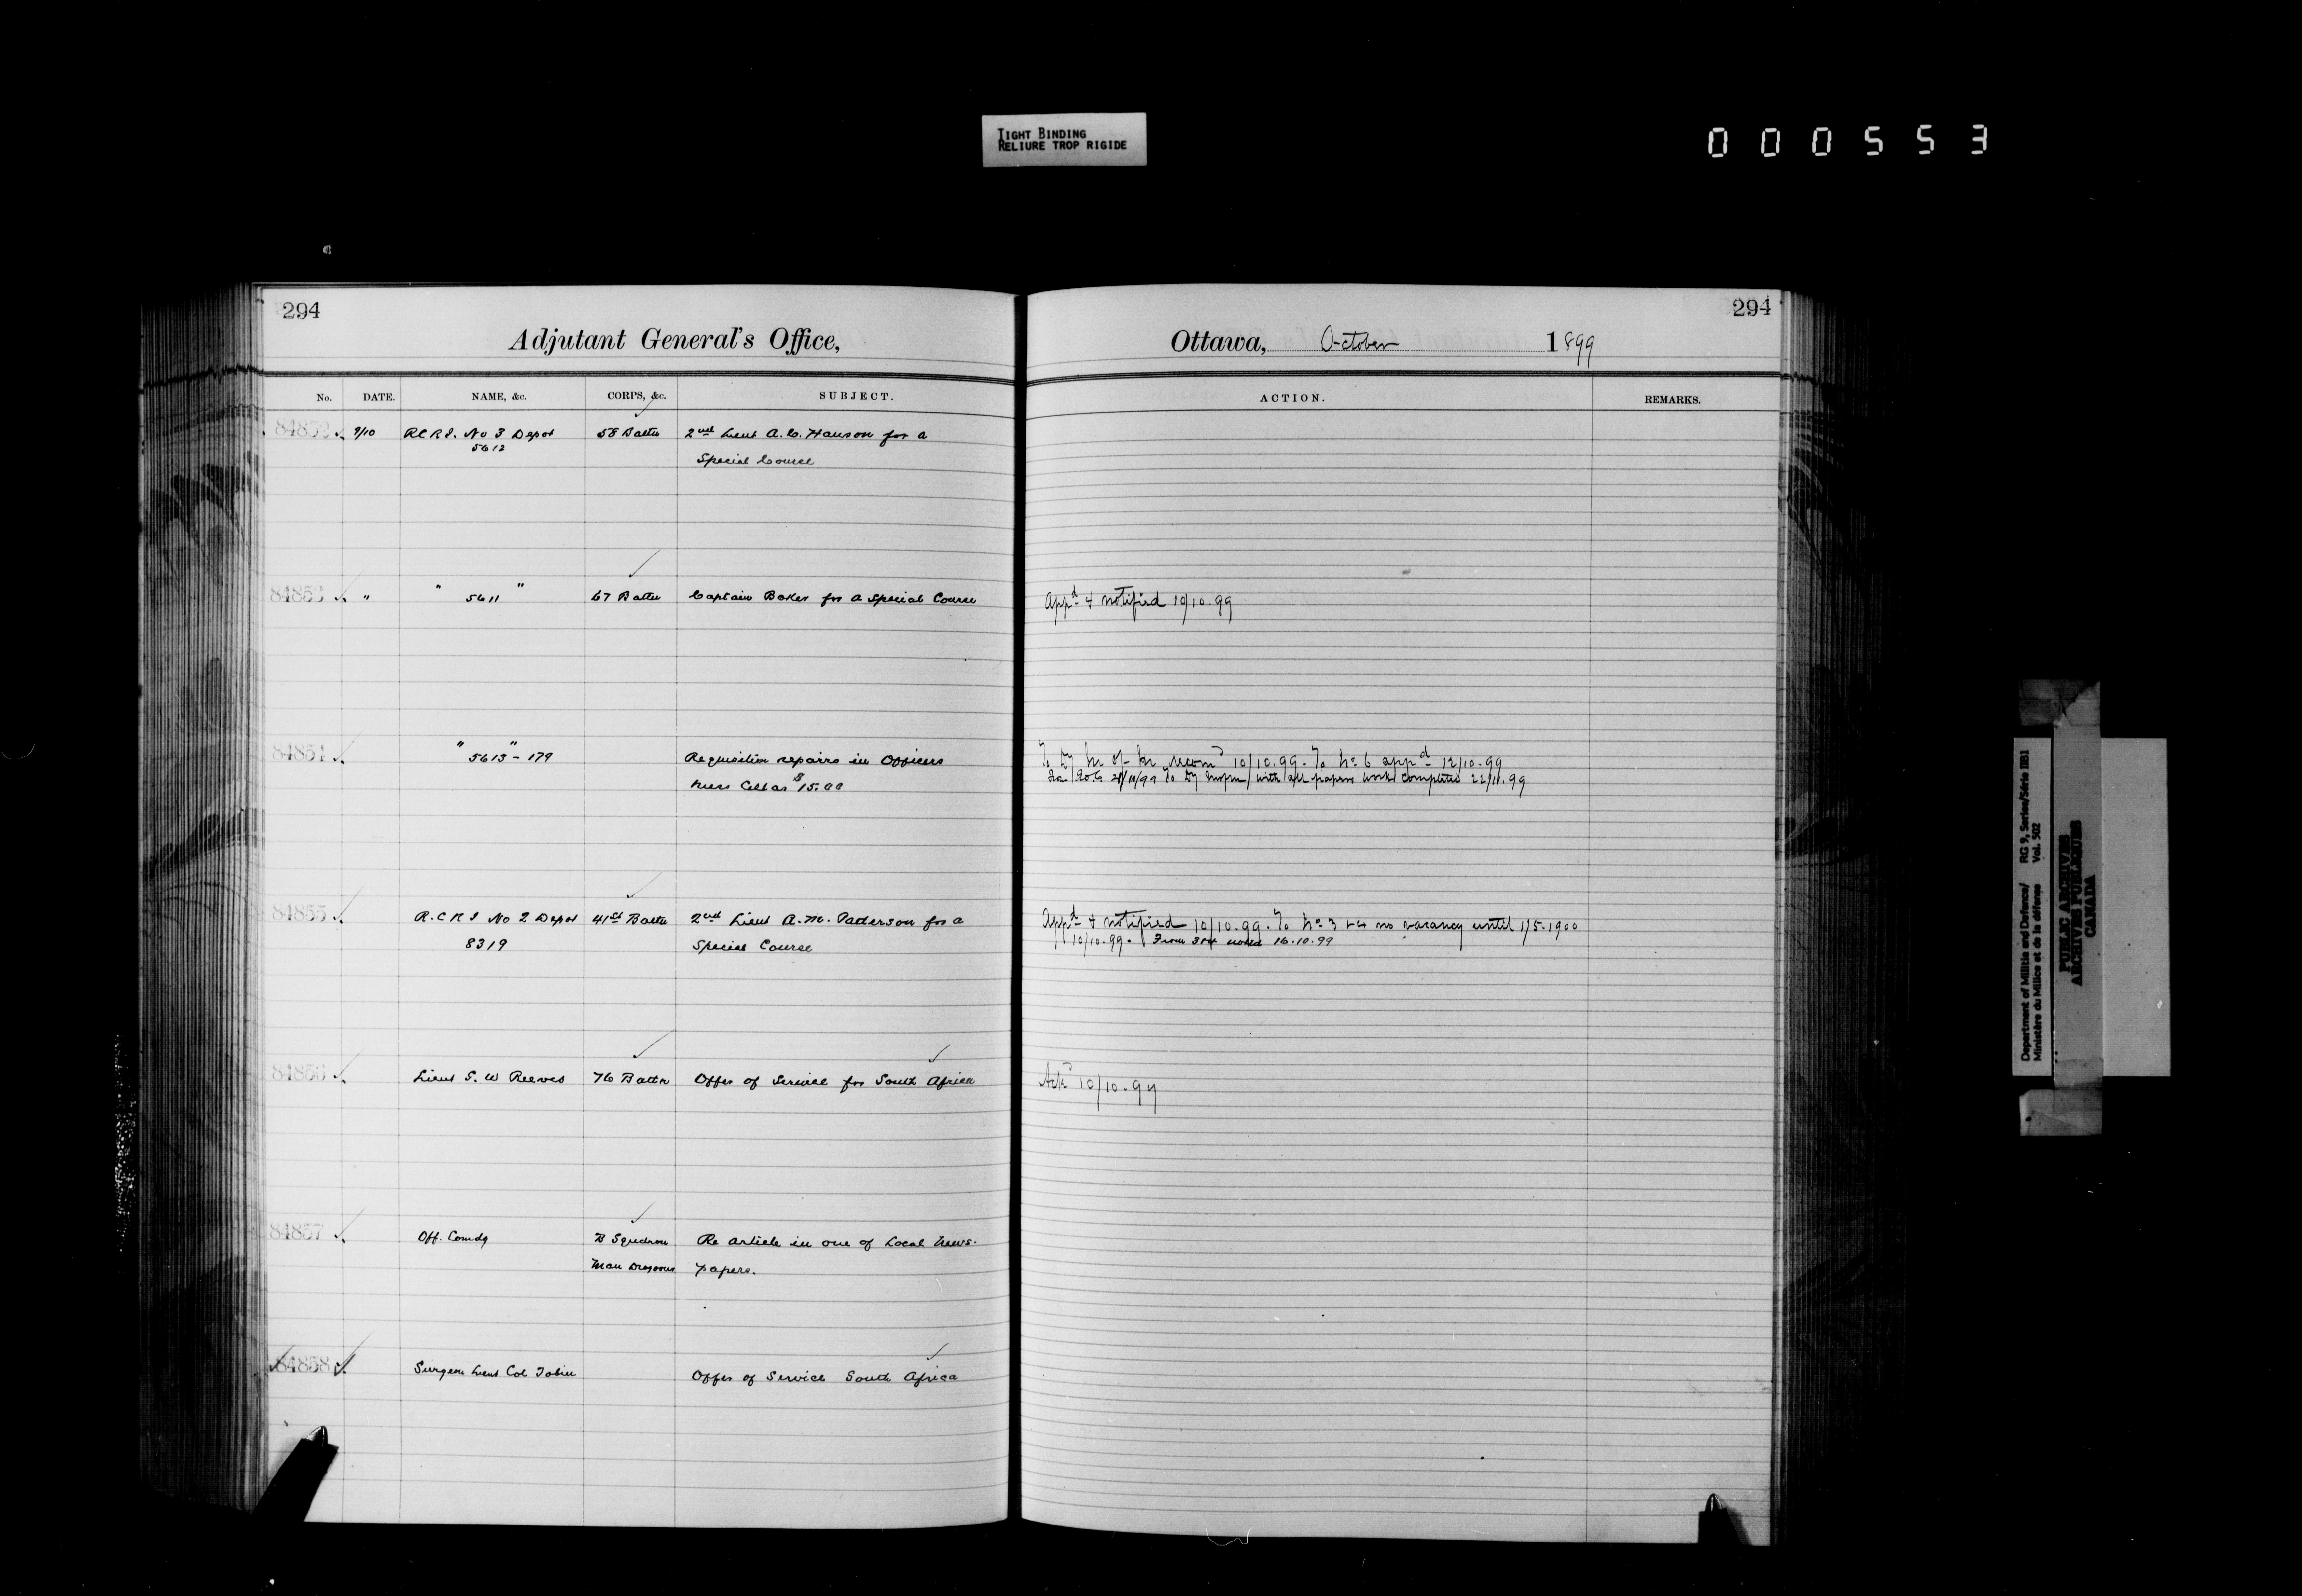 TIGHT BINDING
RELIURE TROP RIGIDE
000553
294
Adjutant General's Office,
No. DATE. NAME, &c. CORPS, &c. SUBJECT.
84852 9/10 RCRI. No 3 Depot 58 Battn 2nd Lieut A. C. Hanson for a
5612 Special Course
84853 " " 5611 " 67 Battn Captain Baker for a Special Course
84854 " 5613" - 179 Requisition repairs in Officers
Mess Cellar $15.00
84855 R.C.R.I No 2 Depot 41st Battn 2nd Lieut A. M. Patterson for a
8319 Special Course
84856 Lieut S. W Reeves 76 Battn Offer of Service for South Africa
84857 Off. Comdg B Squadron Re article in one of Local News-
Man Dragoons papers.
84858 Surgeon Lieut Col Tobin Offer of Service South Africa
294
Ottawa, October 1899
ACTION. REMARKS.
Appd & notified 10/10.99
To Dy M of M recomd 10/10.99. To No 6 appd 12/10.99
with all papers work completed 22/11.99
Appd & notified 10/10.99. To No 3 & 4 no vacancy until 1/5.1900
10/10.99. From 3 & 4 noted 16.10.99
Ackd 10/10.99
Department of Militia and Defence/ RG 9, Series/Série IIB1
Ministère du Milice et de la défense Vol. 502
PUBLIC ARCHIVES
ARCHIVES PUBLIQUES
CANADA